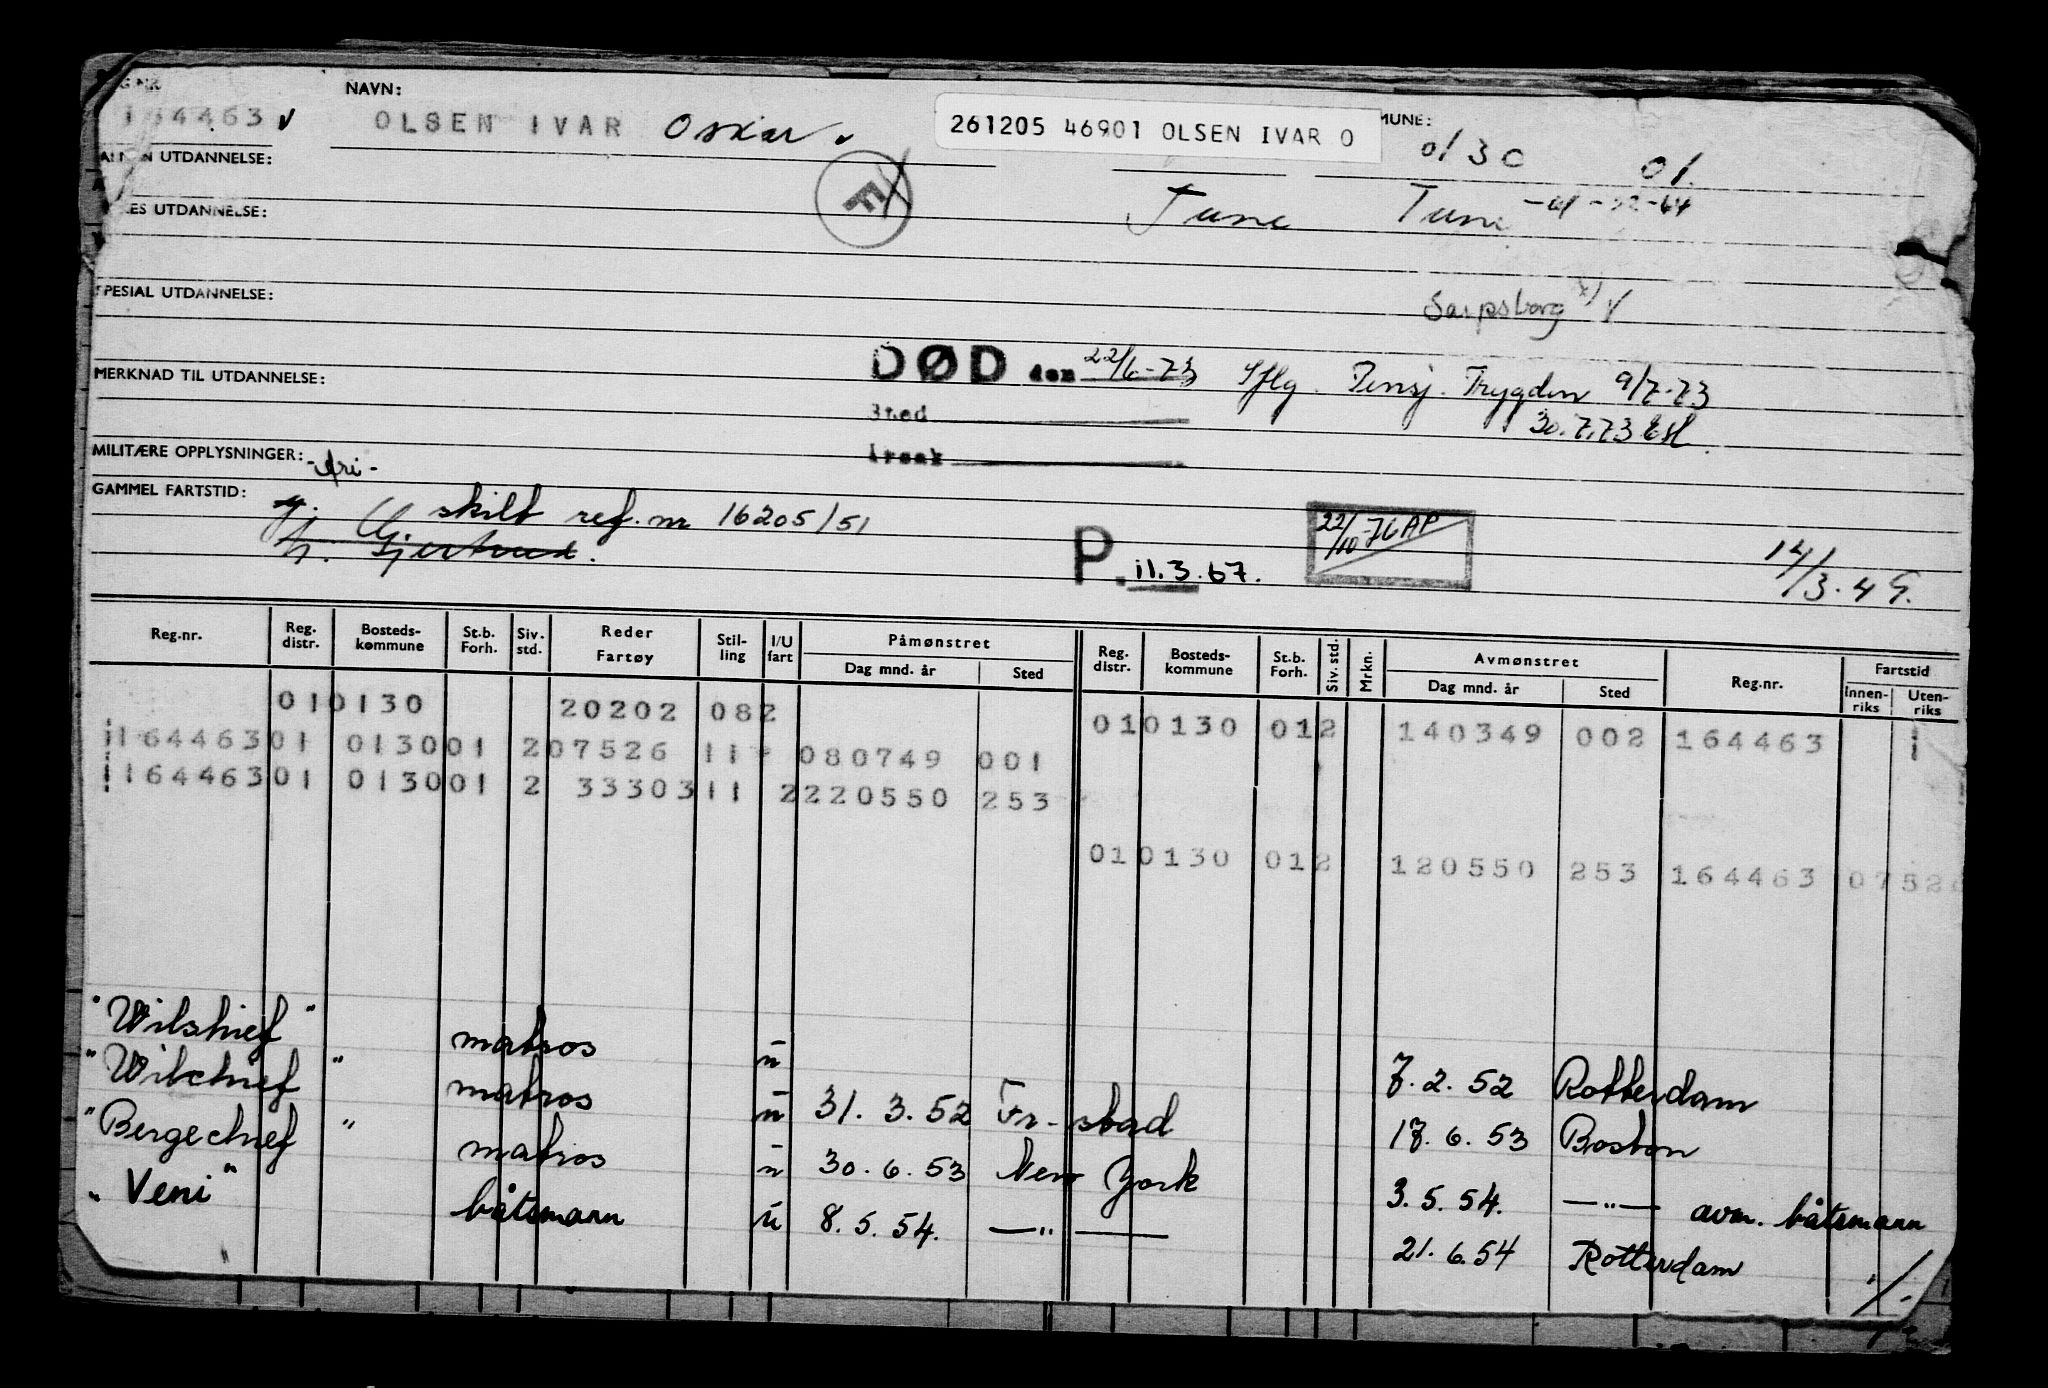 G NR
NAVN:
164463 v OLSEN IVAR Oskar v 261205 46901 OLSEN IVAR O MUNE: 0130 01.
UTDANNELSE:
F
Tune Tune
ES UTDANNELSE:
SPESIAL UTDANNELSE:
Sarpsborg x) v
DØD den 22/6-73 Iflg. Pensj. Trygden 9/7-73
MERKNAD TIL UTDANNELSE:
Sted 30.7.73
Årsak
MILITÆRE OPPLYSNINGER: -fri-
GAMMEL FARTSTID:
g. skilt ref. nr 16205/51
h. Gjertrud.
P. 11.3.67. 22/10-76 AP 14/3.49.
Reg.nr. Reg. distr. Bosteds-kommune St.b. Forh. Siv. std. Reder Fartøy Stil-ling I/U fart Påmønstret Dag mnd. år Sted Reg. distr. Bosteds-kommune St.b. Forh. Siv. std. Mrkn. Avmønstret Dag mnd. år Sted Reg.nr. Fartstid Innen-riks Uten-riks
010130 20202 082 010130 012 140349 002 164463 1
164463 01 0130 01 2 07526 11 080749 001
164463 01 0130 01 2 33303 11 2 220550 253
010130 012 120550 253 164463 0752
"Wilchief" matros u 7.2.52 Rotterdam
"Wilchief" matros u 31.3.52 Fr-stad 17.6.53 Boston
"Bergechief" matros u 30.6.53 New York 3.5.54. —"— avm. båtsmann
"Veni" båtsmann u 8.5.54. —"— 21.6.54 Rotterdam